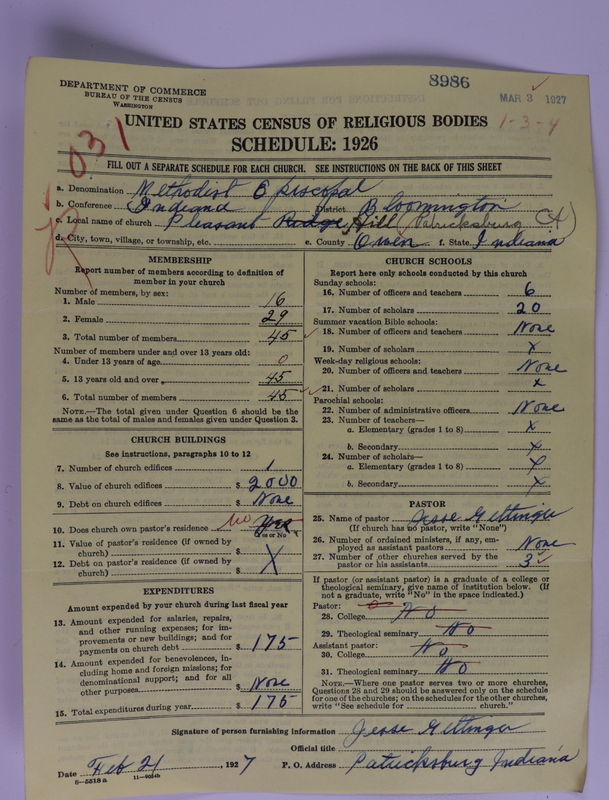 8986
DEPARTMENT OF COMMERCE
BUREAU OF THE CENSUS
WASHINGTON
MAR 3 1927
1-3-4
031
UNITED STATES CENSUS OF RELIGIOUS BODIES
SCHEDULE: 1926
FILL OUT A SEPARATE SCHEDULE FOR EACH CHURCH. SEE INSTRUCTIONS ON THE BACK OF THIS SHEET
a. Denomination Methodist Episcopal
b. Conference Indiana District Bloomington
c. Local name of church Pleasant Ridge Hill (Patricksburg Ct)
d. City, town, village, or township, etc. e. County Owen f. State Indiana
MEMBERSHIP
Report number of members according to definition of
member in your church
Number of members, by sex:
1. Male 16
2. Female 29
3. Total number of members 45
Number of members under and over 13 years old:
4. Under 13 years of age 0
5. 13 years old and over 45
6. Total number of members 45
NOTE.—The total given under Question 6 should be the
same as the total of males and females given under Question 3.
CHURCH BUILDINGS
See instructions, paragraphs 10 to 12
7. Number of church edifices 1
8. Value of church edifices $ 2000
9. Debt on church edifices $ None
10. Does church own pastor's residence no Yes
(Yes or No)
11. Value of pastor's residence (if owned by
church) $
12. Debt on pastor's residence (if owned by
church) $ X
EXPENDITURES
Amount expended by your church during last fiscal year
13. Amount expended for salaries, repairs,
and other running expenses; for im-
provements or new buildings; and for
payments on church debt $ 175
14. Amount expended for benevolences, in-
cluding home and foreign missions; for
denominational support; and for all
other purposes $ None
15. Total expenditures during year $ 175
CHURCH SCHOOLS
Report here only schools conducted by this church
Sunday schools:
16. Number of officers and teachers 6
17. Number of scholars 20
Summer vacation Bible schools:
18. Number of officers and teachers None
19. Number of scholars X
Week-day religious schools:
20. Number of officers and teachers None
21. Number of scholars X
Parochial schools:
22. Number of administrative officers None
23. Number of teachers—
a. Elementary (grades 1 to 8) X
b. Secondary X
24. Number of scholars—
a. Elementary (grades 1 to 8) X
b. Secondary X
PASTOR
25. Name of pastor Jesse Gettinger
(If church has no pastor, write "None")
26. Number of ordained ministers, if any, em-
ployed as assistant pastors None
27. Number of other churches served by the
pastor or his assistants 3
If pastor (or assistant pastor) is a graduate of a college or
theological seminary, give name of institution below. (If
not a graduate, write "No" in the space indicated.)
Pastor: 0
28. College No
29. Theological seminary No
Assistant pastor:
30. College No
31. Theological seminary No
NOTE.—Where one pastor serves two or more churches,
Questions 28 and 29 should be answered only on the schedule
for one of the churches; on the schedules for the other churches,
write "See schedule for church."
Signature of person furnishing information Jesse Gettinger
Official title
Date Feb 21, 1927 P. O. Address Patricksburg Indiana
8—5518 a